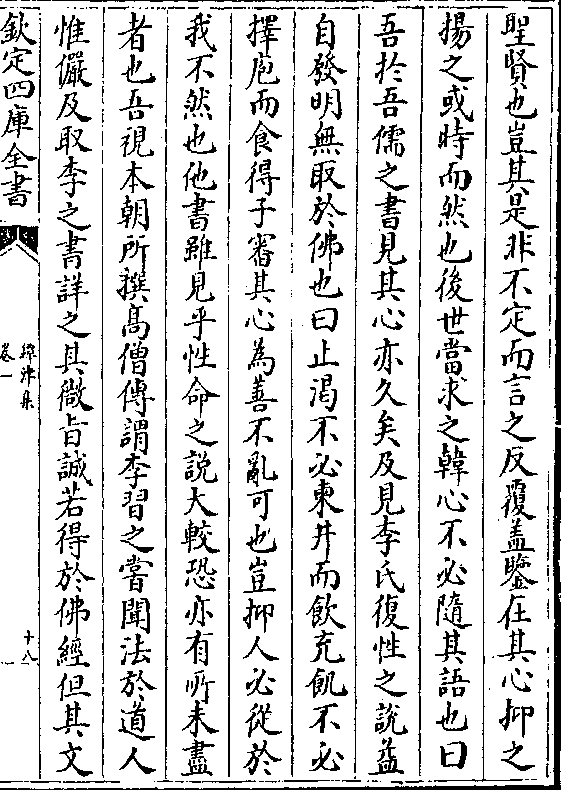 聖賢也豈其是非不定而言之反覆蓋鑒在其心抑之
揚之或時而然也後世當求之韓心不必隨其語也曰
吾於吾儒之書見其心亦久矣及見李氏復性之說益
自發明無取於佛也曰止渴不必柬井而飲充飢不必
擇庖而食得子審其心為善不亂可也豈抑人必從於
我不然也他書雖見乎性命之說大較恐亦有所未盡
者也吾視本朝所撰髙僧傳謂李習之嘗聞法於道人
惟儼及取李之書詳之其微旨誠若得於佛經但其文
欽定四庫全書
鐔津集
卷一
十八